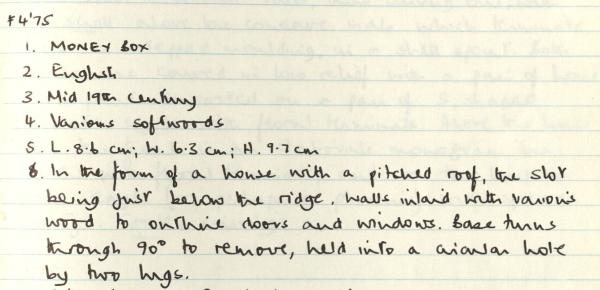 F4'75
1. MONEY BOX
2. English
3. Mid 19th century
4. Various softwoods
5. L. 8.6 cm; W. 6.3 cm; H. 9.7 cm
6. In the form of a house with a pitched roof, the slot
being just below the ridge. Walls inlaid with various
wood to outline doors and windows. Base turns
through 90° to remove, held into a circular hole
by two lugs.